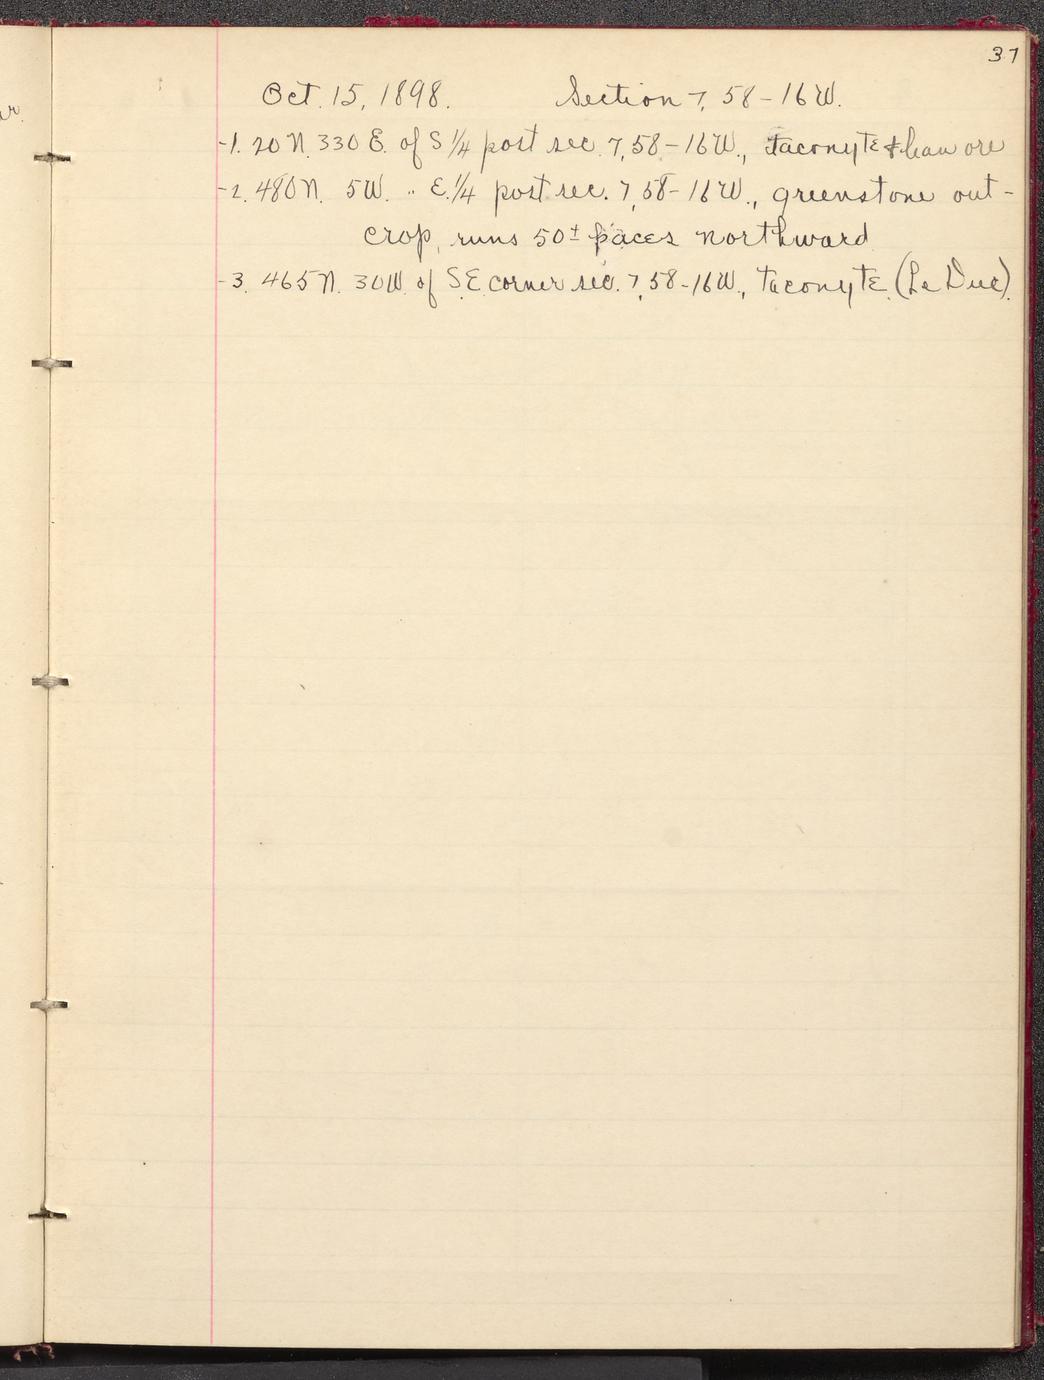 37
Oct. 15, 1898. Section 7, 58-16W.
-1. 20 N. 330 E. of S 1/4 post sec. 7, 58-16W., taconyte & lean ore
-2. 480 N. 5W. " E. 1/4 post sec. 7, 58-16W., greenstone out-
crop, runs 50± paces northward
-3. 465 N. 30W. of S.E. corner sec. 7, 58-16W., taconyte. (Le Duc).